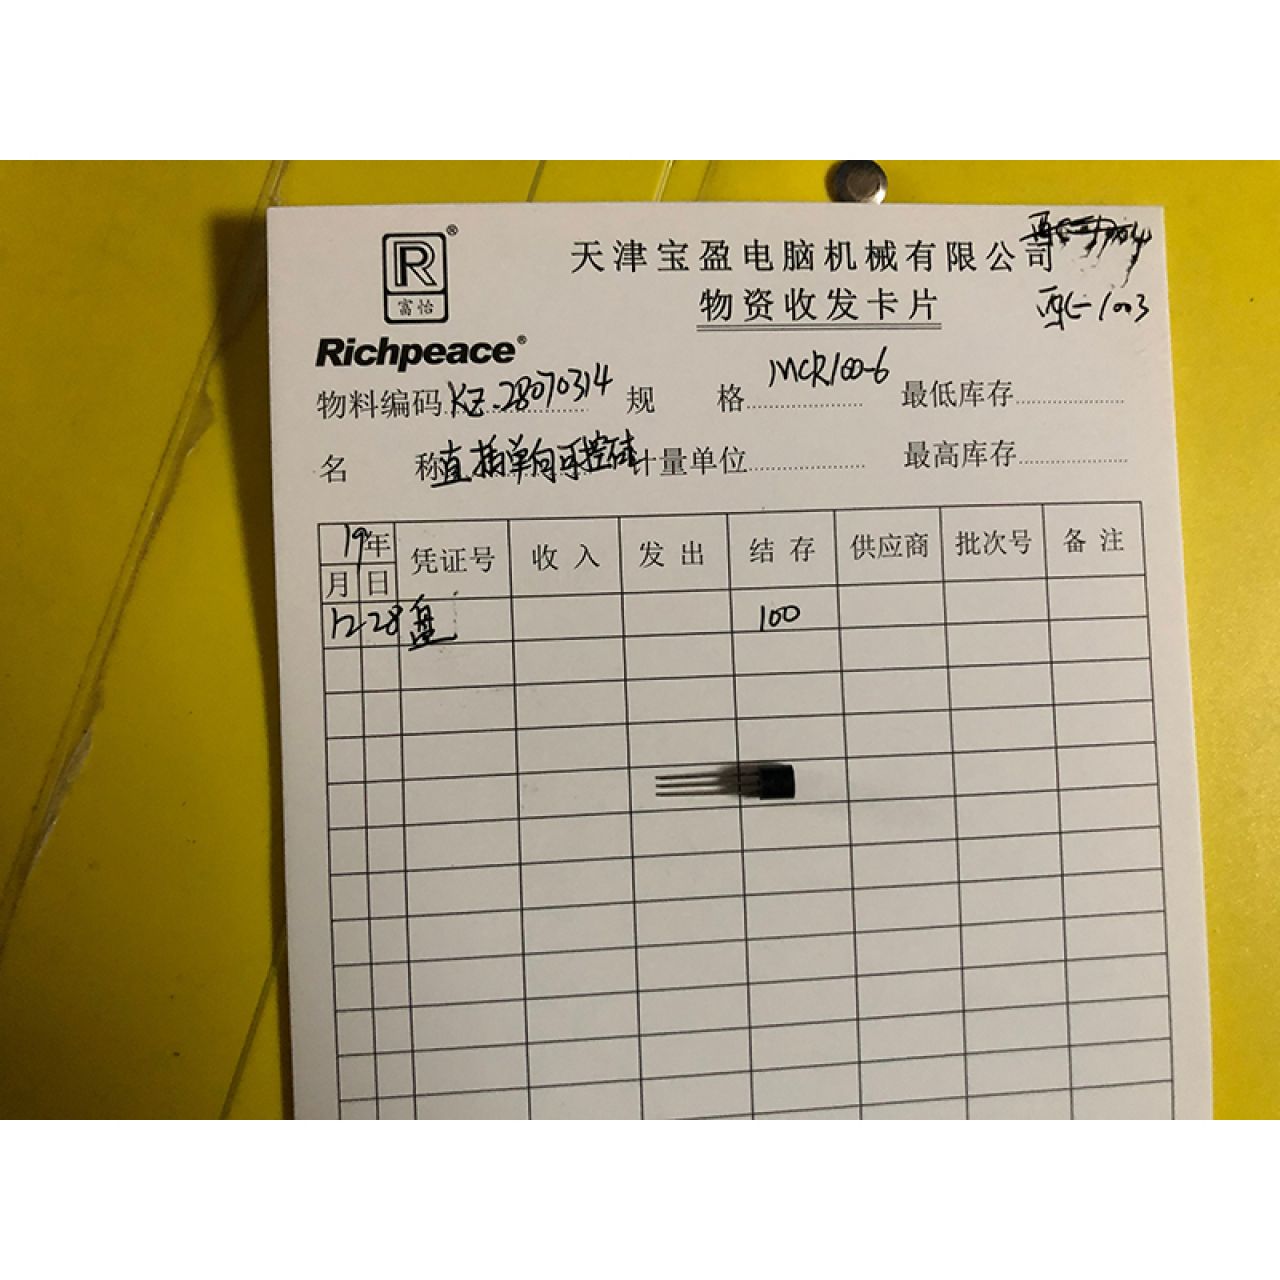 R®
富怡
Richpeace®
天津宝盈电脑机械有限公司
物资收发卡片
西C-1003
物料编码 KZ-28070314 规 格 MCR100-6 最低库存
名 称 直插单向可控硅 计量单位 最高库存
19年 凭证号 收入 发出 结存 供应商 批次号 备注
月 日
12 28 盘 100